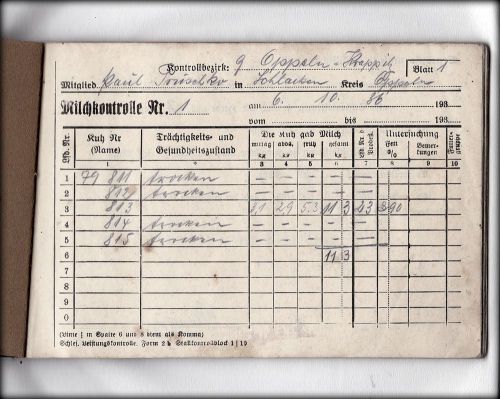 Kontrollbezirk: 9 Oppeln-Krappitz Blatt 1
Mitglied Paul Pruschko in Schlacken Kreis Oppeln
Milchkontrolle Nr. 1 am 6. 10. 36 193
vom bis 193
Lfd. Nr. Kuh Nr (Name) Trächtigkeits- und Gesundheitszustand Die Kuh gab Milch Untersuchung
morg. kg abds. kg früh kg gesamt kg Fett % Bemerkungen
1 2 3 4 5 6 7 8 9 10
1 79 811 trocken — — — — — —
2 812 trocken — — — — — —
3 813 3,1 2,9 5,3 11 3 43 3 90
4 814 trocken — — — — — —
5 815 trocken — — — — — —
6 11 3
7
8
9
0
(Linie | in Spalte 6 und 8 dient als Komma)
Schles. Leistungskontrolle. Form 2b Stallkontrollblock 1|10